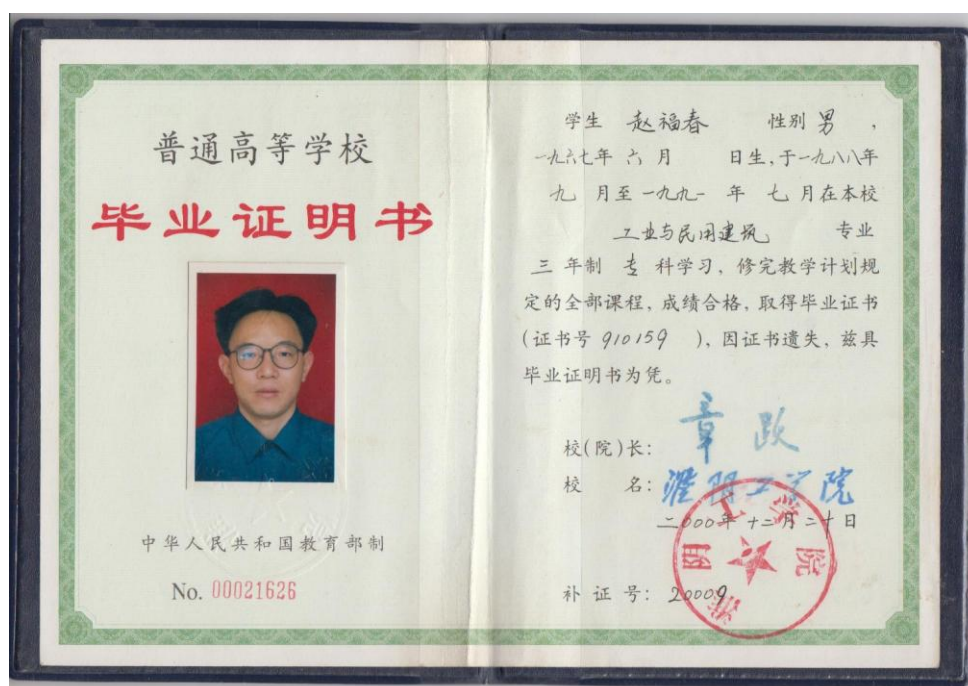 普通高等学校
毕业证明书
中华人民共和国教育部制
No. 00021626
学生 赵福春 性别 男 ，
一九六七年 六 月 日生，于一九八八年
九 月至 一九九一 年 七 月在本校
工业与民用建筑 专业
三 年制 专 科学习，修完教学计划规
定的全部课程，成绩合格，取得毕业证书
(证书号 910159 )，因证书遗失，兹具
毕业证明书为凭。
校(院)长： 章跃
校 名： 淮阴工学院
二000年 十二月 二十日
补 证 号： 20009
淮阴工学院